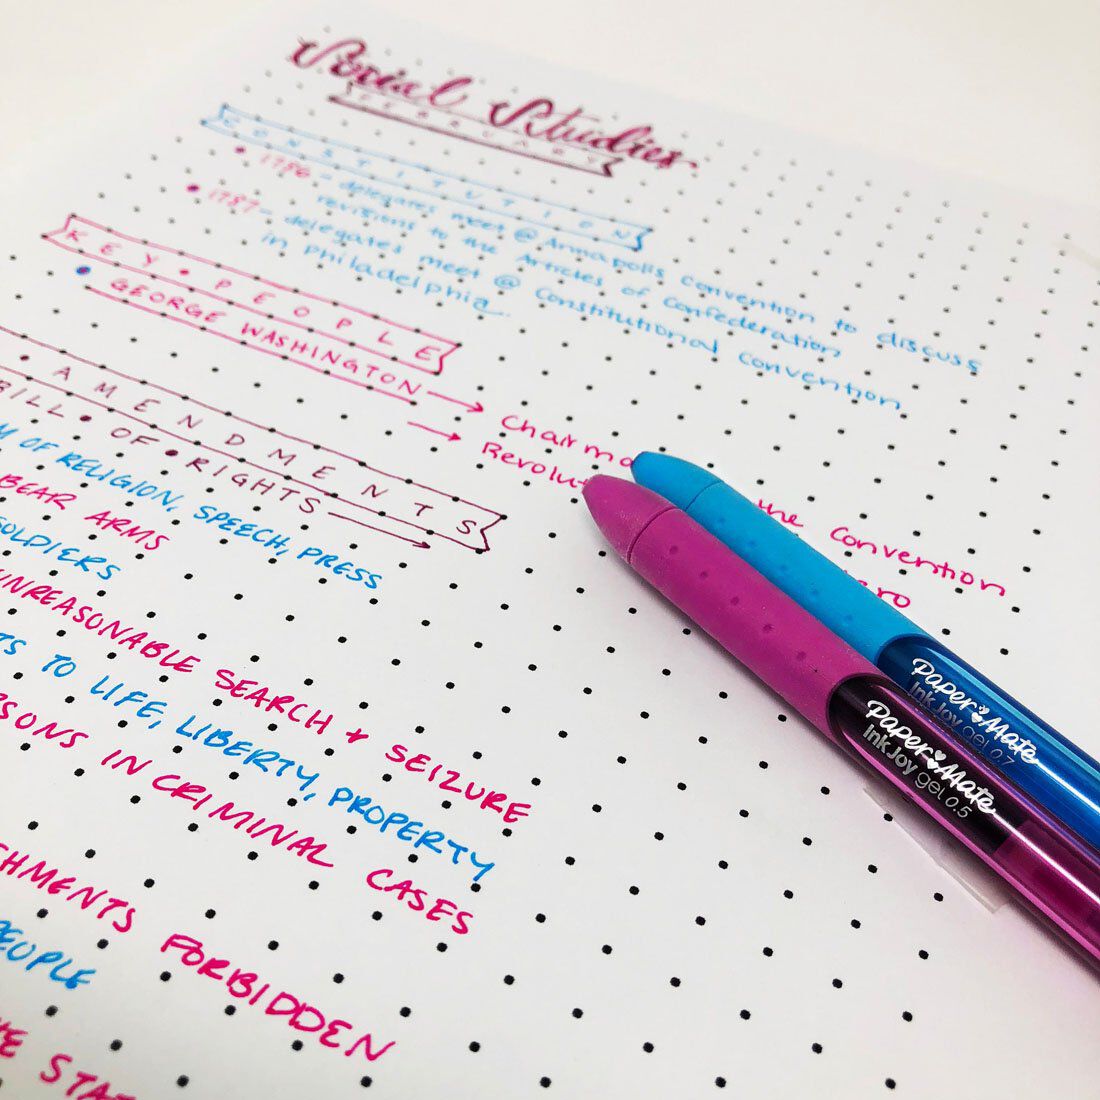 Social Studies
FEBRUARY
CONSTITUTION
• 1786 - delegates meet @ Annapolis Convention to discuss
revisions to the Articles of Confederation
• 1787 - delegates meet @ Constitutional Convention
in Philadelphia.
KEY • PEOPLE
• GEORGE WASHINGTON → Chairma the Convention
→ Revolut
AMENDMENTS
BILL • OF • RIGHTS →
OF RELIGION, SPEECH, PRESS
BEAR ARMS
SOLDIERS
UNREASONABLE SEARCH + SEIZURE
TO LIFE, LIBERTY, PROPERTY
IN CRIMINAL CASES
FORBIDDEN
PEOPLE
Paper Mate
InkJoy gel 0.7
Paper Mate
InkJoy gel 0.5